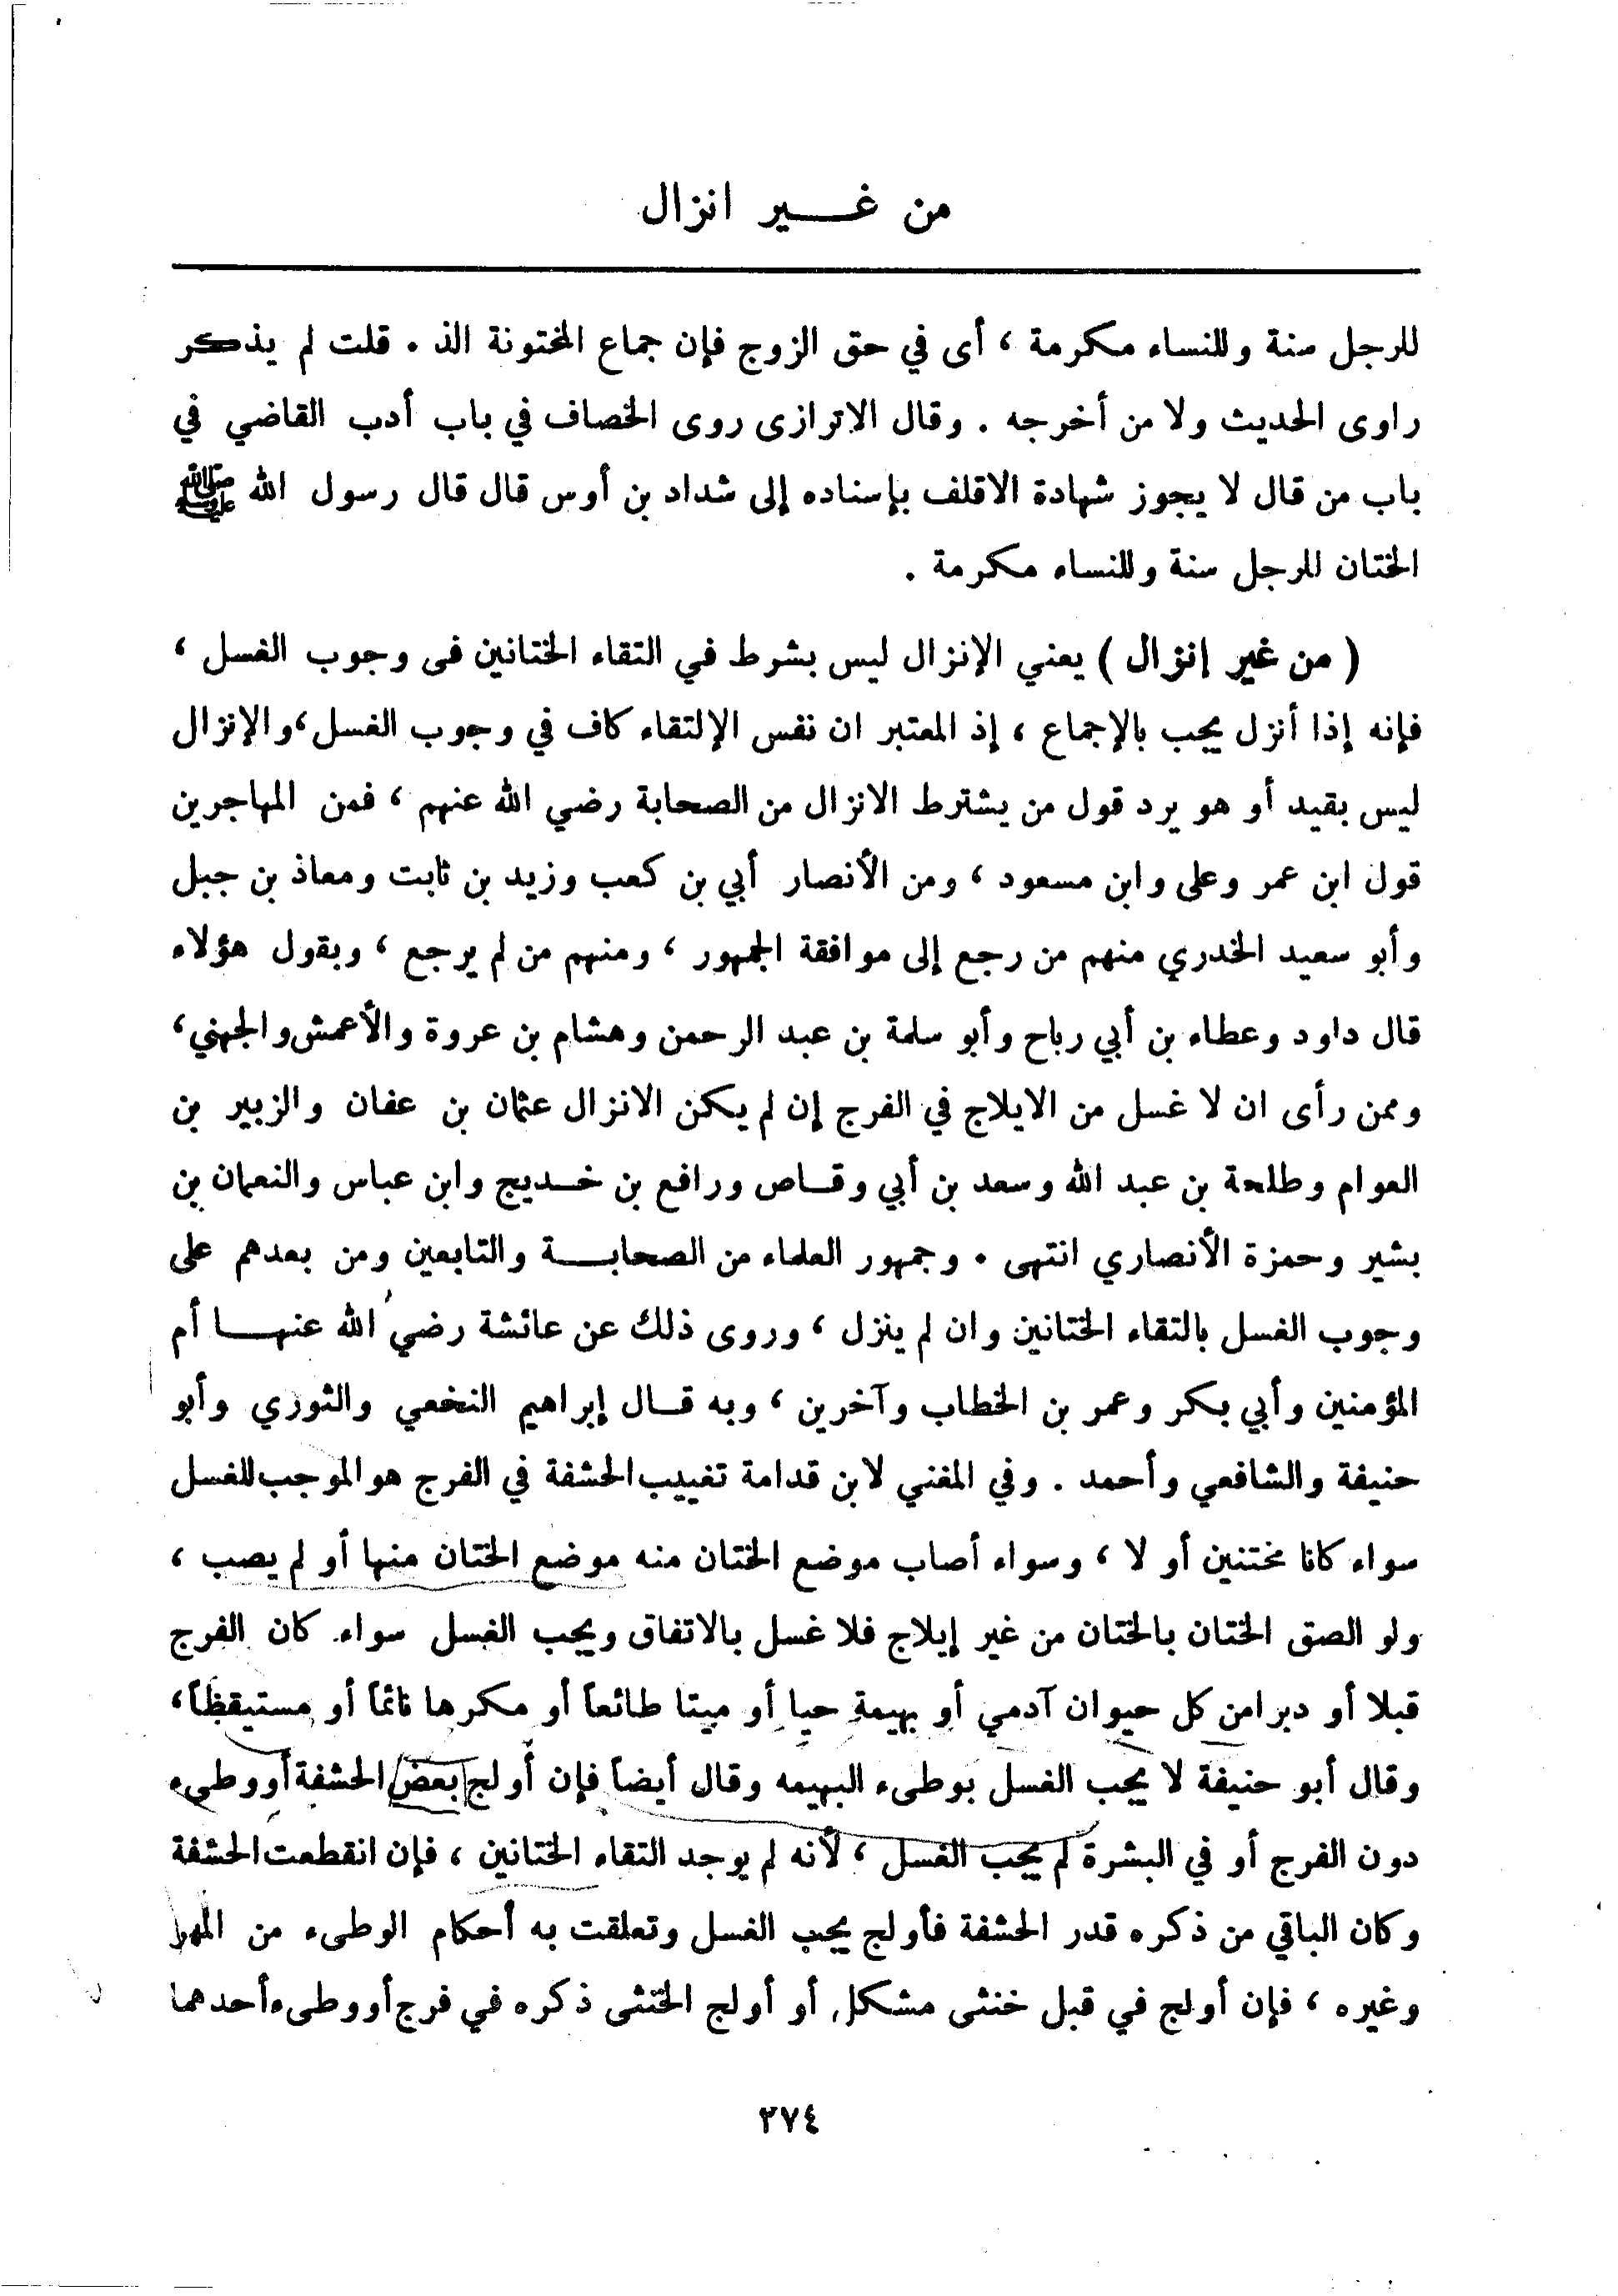 من غــــير انزال
للرجل سنة وللنساء مكرمة ، أى في حق الزوج فإن جماع المختونة الذ . قلت لم يذكر
راوى الحديث ولا من أخرجه . وقال الاترازى روى الخصاف في باب أدب القاضي في
باب من قال لا يجوز شهادة الاقلف بإسناده إلى شداد بن أوس قال قال رسول الله ﷺ
الختان للرجل سنة وللنساء مكرمة .
( من غير إنزال ) يعني الإنزال ليس بشرط في التقاء الختانين فى وجوب الغسل ،
فإنه إذا أنزل يجب بالإجماع ، إذ المعتبر ان نفس الإلتقاء كاف في وجوب الغسل ، والإنزال
ليس بقيد أو هو يرد قول من يشترط الانزال من الصحابة رضي الله عنهم ، فمن المهاجرين
قول ابن عمر وعلى وابن مسعود ، ومن الأنصار أبي بن كعب وزيد بن ثابت ومعاذ بن جبل
وأبو سعيد الخدري منهم من رجع إلى موافقة الجمهور ، ومنهم من لم يرجع ، وبقول هؤلاء
قال داود وعطاء بن أبي رباح وأبو سلمة بن عبد الرحمن وهشام بن عروة والأعمش والجهني ،
وممن رأى ان لا غسل من الايلاج في الفرج إن لم يكن الانزال عثمان بن عفان والزبير بن
العوام وطلحة بن عبد الله وسعد بن أبي وقــاص ورافع بن خــديج وابن عباس والنعمان بن
بشير وحمزة الأنصاري انتهى . وجمهور العلماء من الصحابــــة والتابعين ومن بعدهم على
وجوب الغسل بالتقاء الختانين وان لم ينزل ، وروى ذلك عن عائشة رضي الله عنهــــا أم
المؤمنين وأبي بكر وعمر بن الخطاب وآخرين ، وبه قــال إبراهيم النخعي والثوري وأبو
حنيفة والشافعي وأحمد . وفي المغني لابن قدامة تغييب الحشفة في الفرج هو الموجب للغسل
سواء كانا مختتنين أو لا ، وسواء أصاب موضع الختان منه موضع الختان منها أو لم يصب ،
ولو الصق الختان بالختان من غير إيلاج فلا غسل بالاتفاق ويجب الغسل سواء كان الفرج
قبلا أو دبرا من كل حيوان آدمي أو بهيمة حيا أو ميتا طائعاً أو مكرها نائماً أو مستيقظاً ،
وقال أبو حنيفة لا يجب الغسل بوطىء البهيمه وقال أيضاً فإن أولج بعض الحشفة أو وطىء
دون الفرج أو في البشرة لم يجب الغسل ، لأنه لم يوجد التقاء الختانين ، فإن انقطعت الحشفة
وكان الباقي من ذكره قدر الحشفة فأولج يجب الغسل وتعلقت به أحكام الوطىء من المهر
وغيره ، فإن أولج في قبل خنثى مشكل أو أولج الخنثى ذكره في فرج أو وطىء أحدهما
٢٧٤